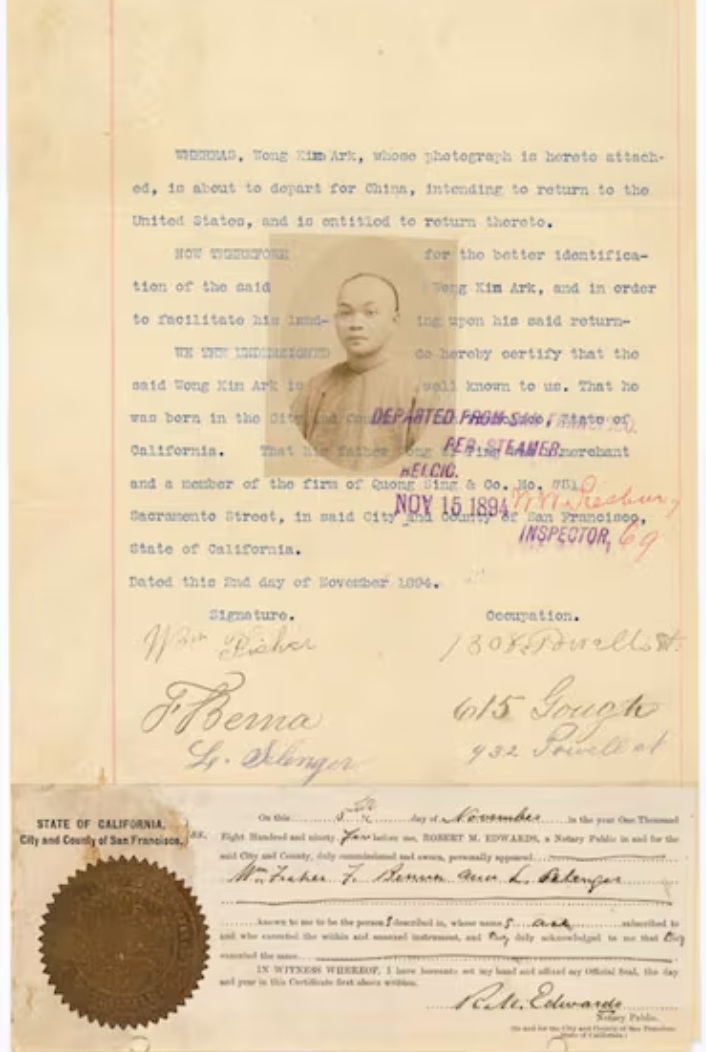 WHEREAS, Wong Kim Ark, whose photograph is hereto attach-
ed, is about to depart for China, intending to return to the
United States, and is entitled to return thereto.
NOW THEREFORE for the better identifica-
tion of the said Wong Kim Ark, and in order
to facilitate his land- ing upon his said return-
WE THE UNDERSIGNED do hereby certify that the
said Wong Kim Ark is well known to us. That he
was born in the City and State of
California. That his father merchant
and a member of the firm of Quong Sing & Co. No. 751
Sacramento Street, in said City and County of San Francisco,
State of California.
DEPARTED FROM SAN FRANCISCO
PER STEAMER
BELGIC.
NOV 15 1894
INSPECTOR, 69
Dated this 2nd day of November 1894.
Signature. Occupation.
Wm Fisher 1308 Powell St.
F Benna 615 Gough
L. Selenger 932 Powell st
STATE OF CALIFORNIA,
City and County of San Francisco, ss.
On this 5th day of November in the year One Thousand
Eight Hundred and ninety four before me, ROBERT M. EDWARDS, a Notary Public in and for the
said City and County, duly commissioned and sworn, personally appeared
Wm Fisher F. Benna and L. Selenger
known to me to be the persons described in, whose names are subscribed to
and who executed the within and annexed instrument, and they duly acknowledged to me that they
executed the same.
IN WITNESS WHEREOF, I have hereunto set my hand and affixed my Official Seal, the day
and year in this Certificate first above written.
R. M. Edwards
Notary Public.
(In and for the City and County of San Francisco
State of California.)